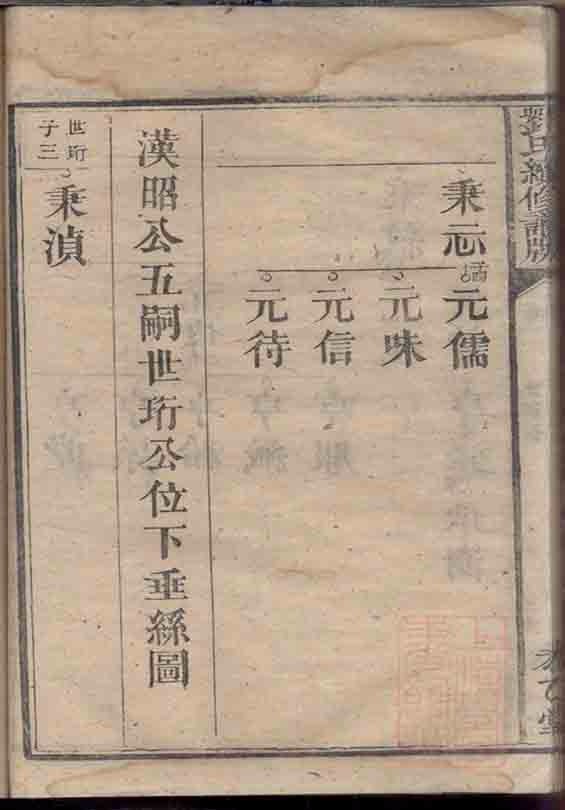 續修譜
堂
秉
元儒
元味
元信
元待
漢昭公五嗣世珩公位下垂絲圖
世珩
子三
秉滇